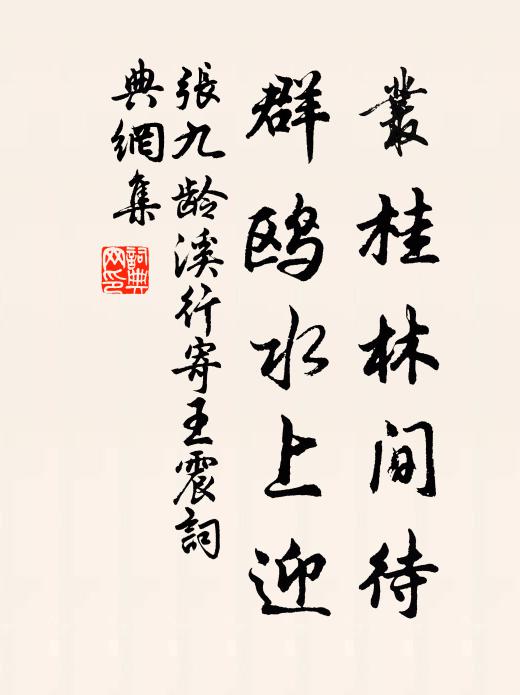 叢桂林间待
群鸥水上迎
張九龄溪行寄王震詞
典網集
詞典
网印